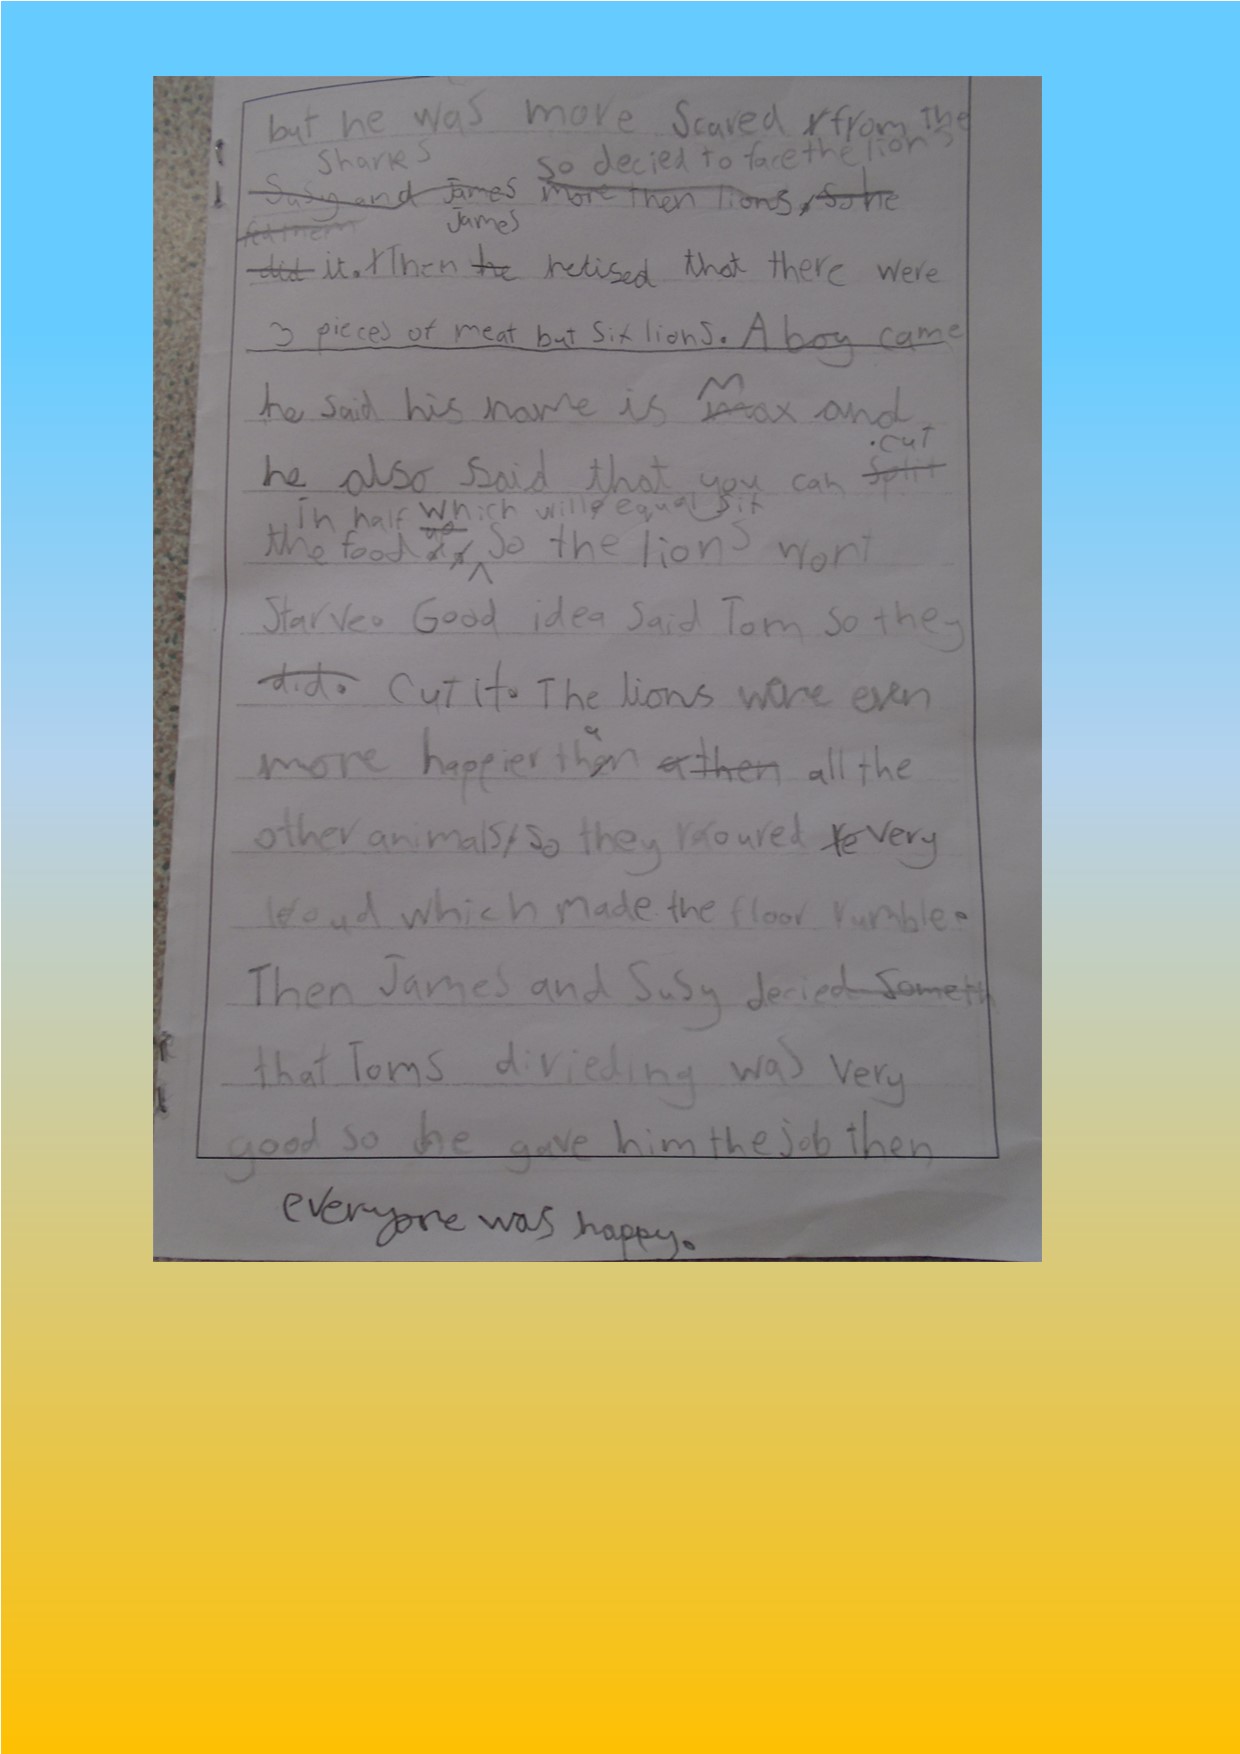 but he was more scared from the
sharks so decied to face the lions
Susy and James more then lions, so he
fed them James
did it. Then he netised that there were
3 pieces of meat but six lions. A boy came
he said his name is Max and
he also said that you can split
.cut
in half which will equal six
the food so the lions wont
starve. Good idea said Tom so they
did. cut it. The lions were even
more happier than then all the
other animals, so they roured very
loud which made the floor rumble.
Then James and Susy decied someth
that Toms divieding was very
good so he gave him the job then
everyone was happy.